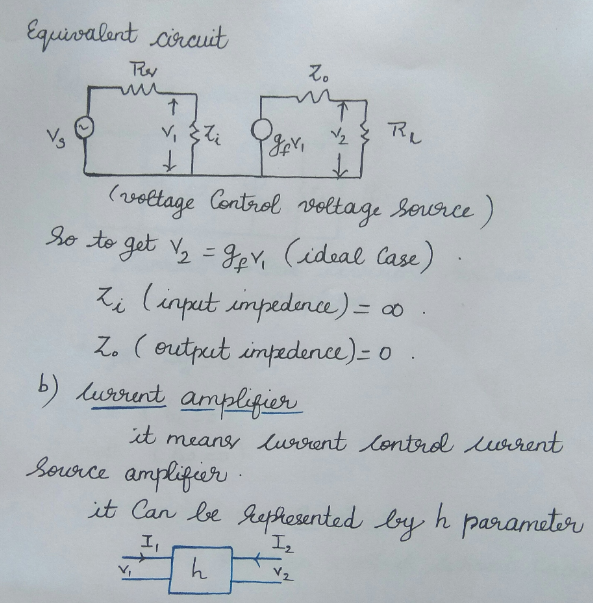 Equivalent circuit
Z₀
Vs V₁ Zi gfV₁ V₂ RL
(voltage Control voltage Source)
So to get V₂ = gfV₁ (ideal Case) .
Zi (input impedence) = ∞ .
Z₀ (output impedence) = 0 .
b) Current amplifier
it means Current Control Current
Source amplifier .
it Can be Represented by h parameter
I₁ I₂
V₁ h V₂